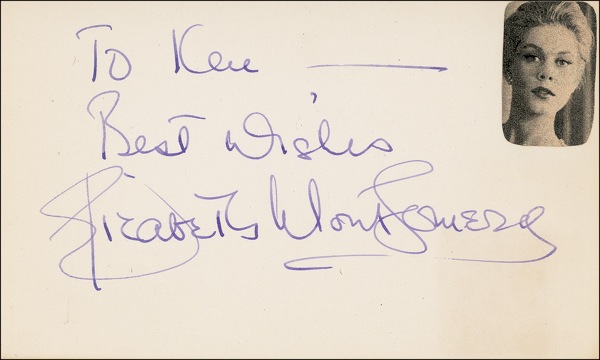 To Ken —
Best Wishes
Elizabeth Montgomery